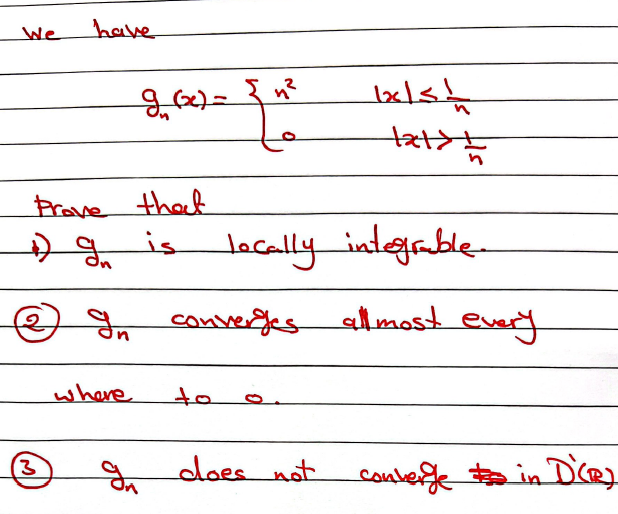 we have
gₙ(x) = { n² |x| ≤ 1/n
0 |x| > 1/n
Prove that
1) gₙ is locally integrable.
② gₙ converges allmost every
where to 0.
③ gₙ does not converge in D'(ℝ)